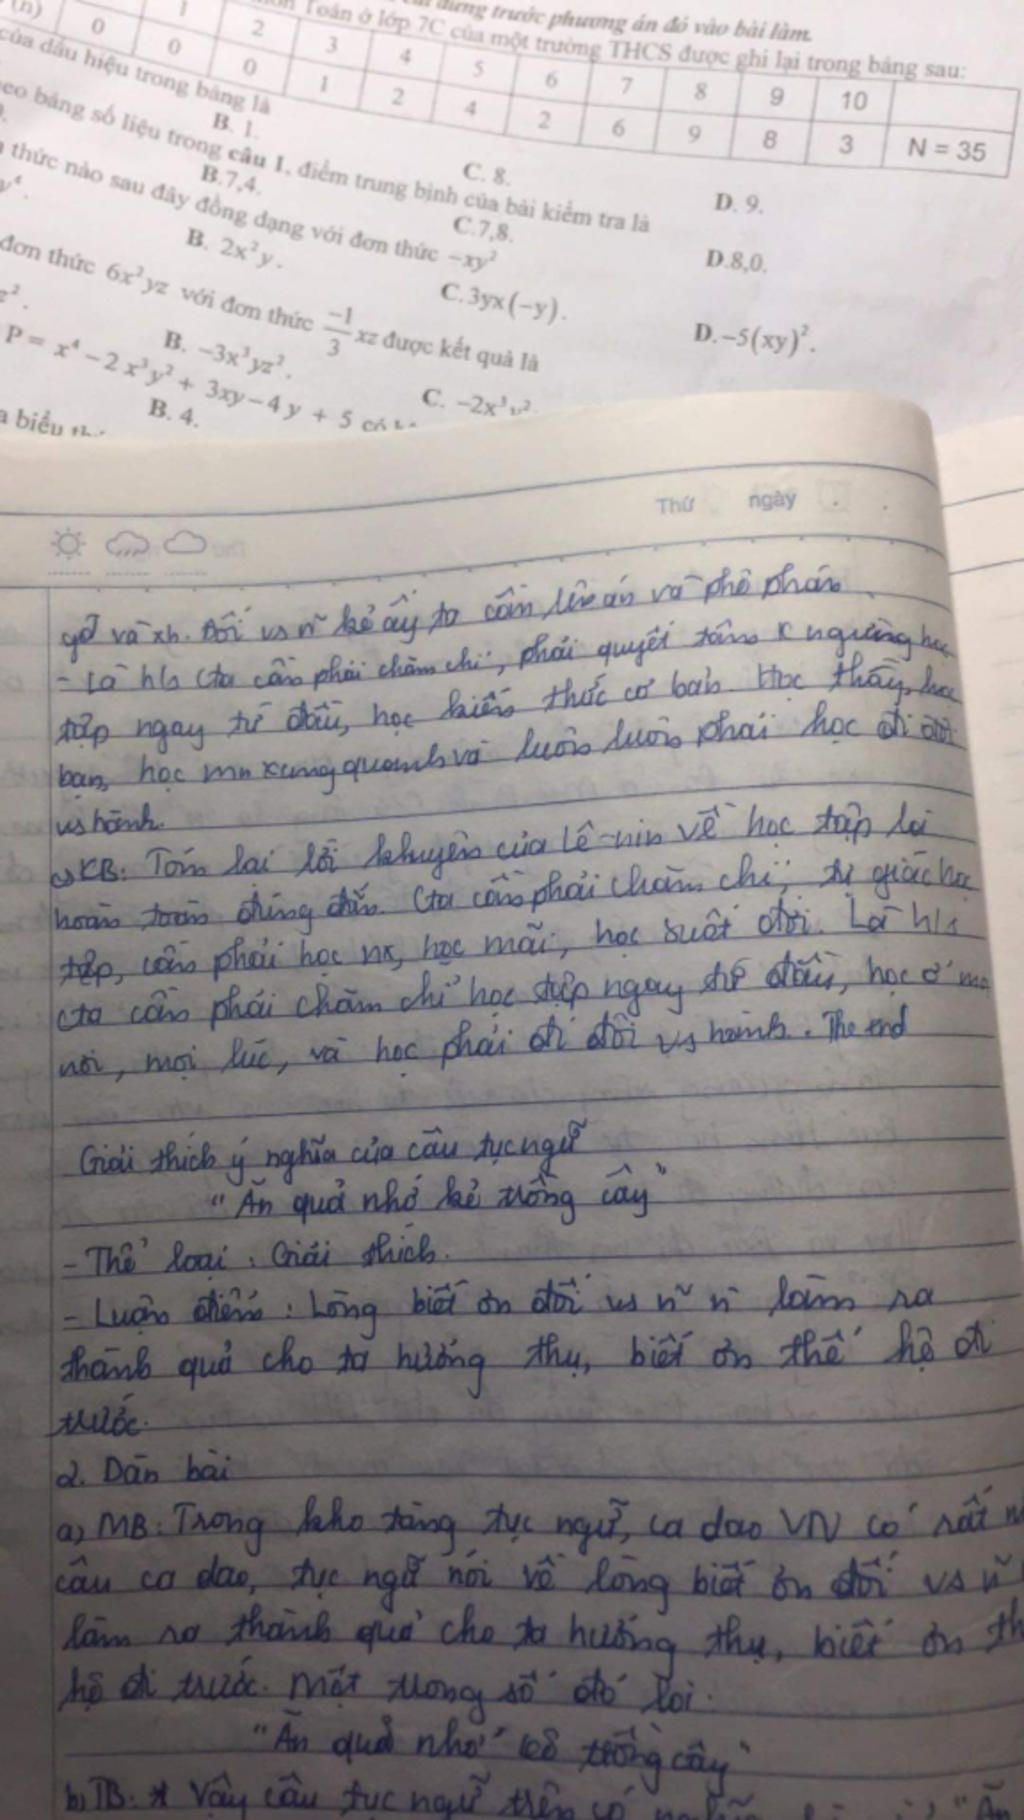 đứng trước phương án đó vào bài làm.
Toán ở lớp 7C của một trường THCS được ghi lại trong bảng sau:
0 1 2 3 4 5 6 7 8 9 10
(n) 0 0 0 1 2 4 2 6 9 8 3 N = 35
của dấu hiệu trong bảng là
B. 1. C. 8. D. 9.
eo bảng số liệu trong câu 1, điểm trung bình của bài kiểm tra là
B.7,4. C.7,8. D.8,0.
thức nào sau đây đồng dạng với đơn thức −xy²
B. 2x²y. C. 3yx(−y). D. −5(xy)².
đơn thức 6x²yz với đơn thức −1/3 xz được kết quả là
B. −3x³yz². C. −2x³y²
P = x⁴ − 2x³y² + 3xy − 4y + 5 có
B. 4.
a biểu
Thứ ngày
gđ và xh. Đối vs n~ kẻ ấy ta cần lên án và phê phán
- Là hls cta cần phải chăm chỉ, phải quyết tâm k ngừng học
tập ngay từ đầu, học kiến thức cơ bản. Học thầy, học
bạn, học mn xung quanh và luôn luôn phải học đi đôi
vs hành.
c, KB: Tóm lại lời khuyên của Lê-nin về học tập là
hoàn toàn đúng đắn. Cta cần phải chăm chỉ, tự giác học
tập, cần phải học nx, học mãi, học suốt đời. Là hls
cta cần phải chăm chỉ học tập ngay từ đầu, học ở mọ
nơi, mọi lúc, và học phải đi đôi vs hành. The end
Giải thích ý nghĩa của câu tục ngữ
"Ăn quả nhớ kẻ trồng cây"
- Thể loại: Giải thích.
- Luận điểm: Lòng biết ơn đối vs n~ n` làm ra
thành quả cho ta hưởng thụ, biết ơn thế hệ đi
trước.
2. Dàn bài
a) MB: Trong kho tàng tục ngữ, ca dao VN có rất n
câu ca dao, tục ngữ nói về lòng biết ơn đối vs n~
làm ra thành quả cho ta hưởng thụ, biết ơn th
hệ đi trước. Một trong số đó là:
"Ăn quả nhớ kẻ trồng cây"
b) TB: * Vậy câu tục ngữ trên có